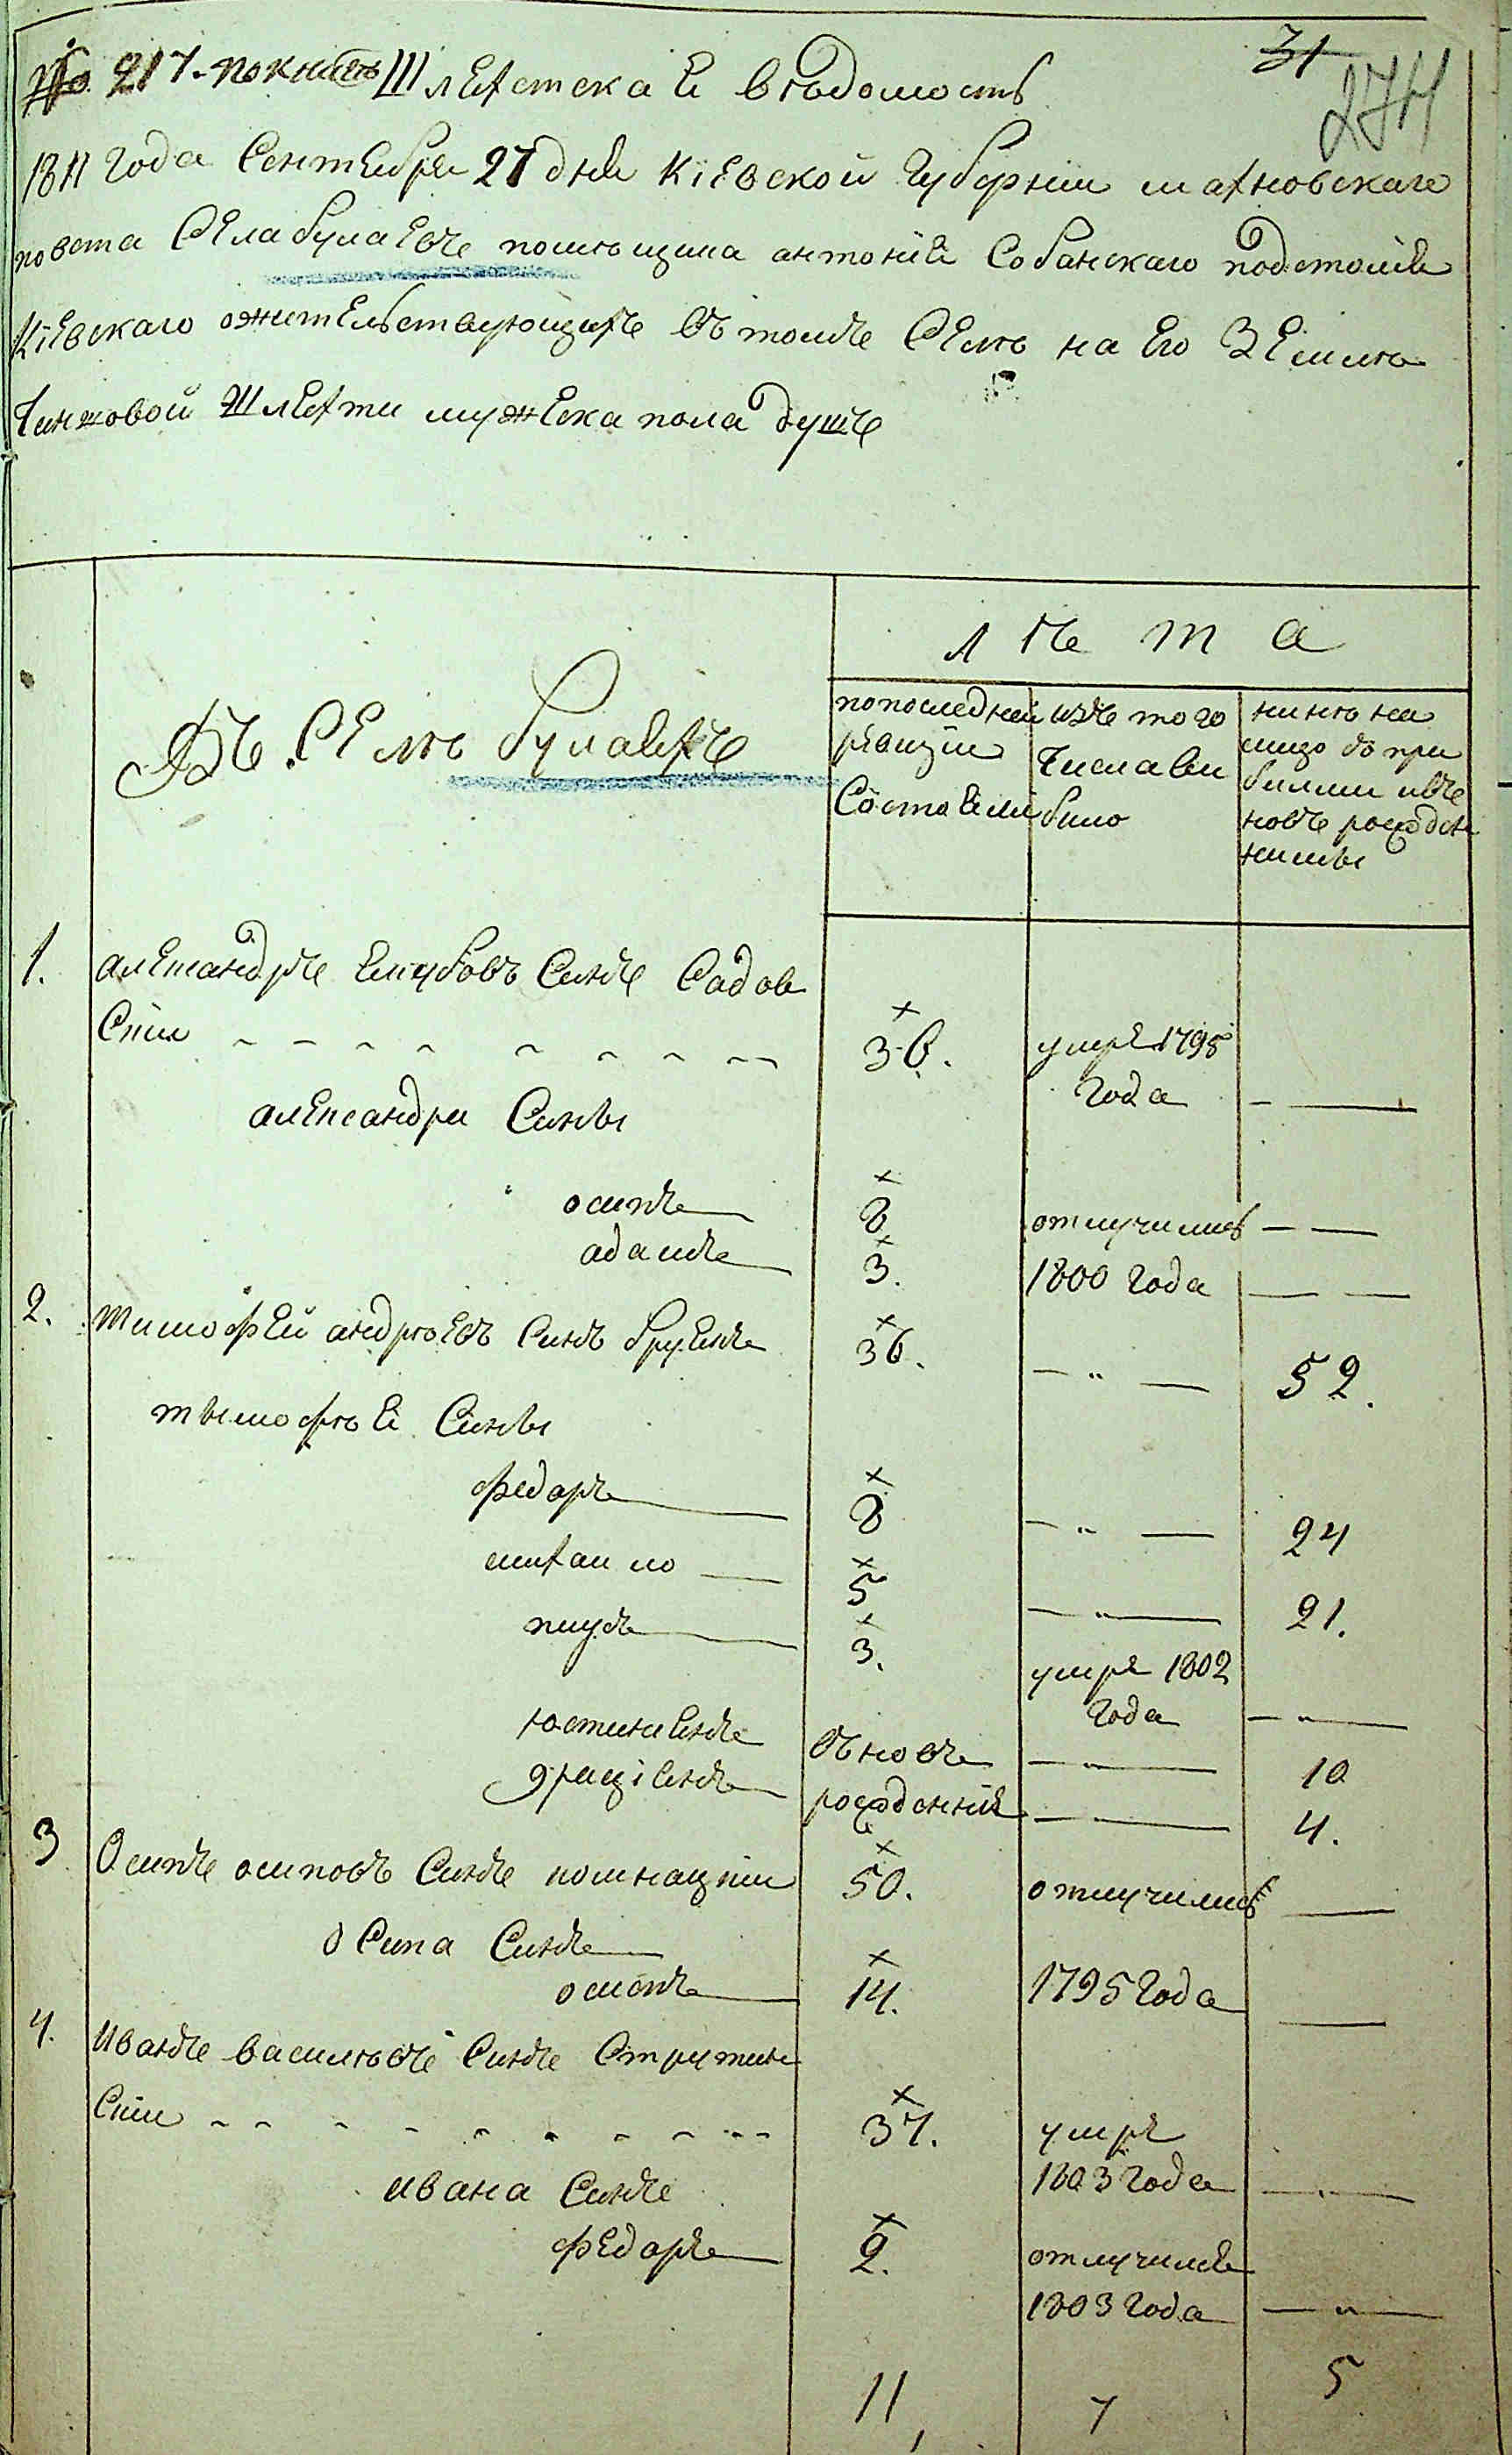 № 217. по книгѣ Шлехетская вѣдомость
31
274
1811 года Сентебря 27 дня Кіевской губерніи махновскаго
повета Села булаевъ помѣщика антонія Собанскаго подстолія
Кіевскаго ожителствующихъ въ томъ Селѣ на Его Землѣ
Чиншовой Шлехти мужеска пола душъ
лѣта
Въ Селѣ булаяхъ
попоследней
ревизіи
Состояли
изъ того
Числа ви
било
нинѣ на
лицо до при
билими ивъ
новъ рожде
ними
1. алеѯандръ Якубовъ Синъ Садов
Скіи
36.
умре 1795
года
александри Сины
осипъ
8
отлучилис
адамъ
3.
1800 года
2. тимофей андрѣевъ Синъ бруенъ
36.
52.
тымофѣя Сины
федоръ
8
24
михаило
5
21.
якубъ
3.
умре 1802
года
юстиніянъ
Въновъ
10
граціянъ
рожденніе
4.
3 Осипъ осиповъ Синъ помнацкіи
50.
отлучились
осипа Синъ
осипъ
14.
1795 года
4. Иванъ василѣвъ Синъ Струтин
Скіи
37.
умре
1803 года
ивана Синъ
федоръ
2.
отлучился
1803 года
11,
7
5